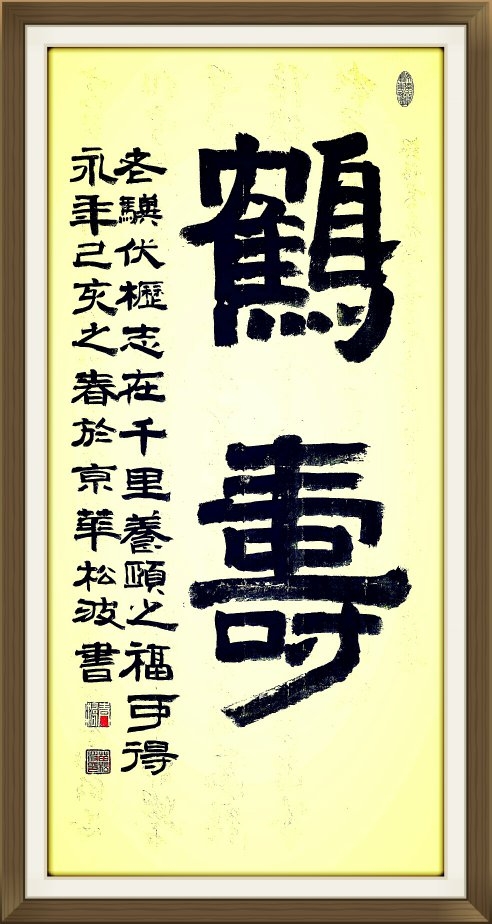 鶴壽
老驥伏櫪志在千里養頤之福可得
永年己亥之春於京華松波書